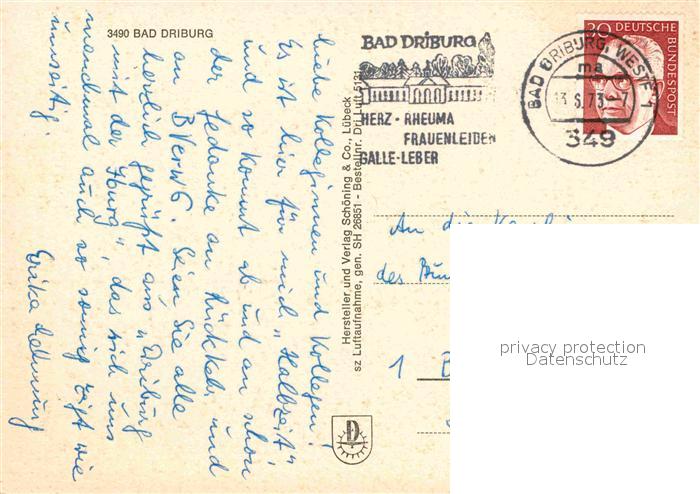 3490 BAD DRIBURG
Liebe Kolleginnen und Kollegen!
Es ist hier für mich „Halbzeit“
und so kommt ab und an schon
der Gedanke an Rückkehr und
an BVerwG. Seien Sie alle
herzlich gegrüßt aus „Driburg
mit der Iburg“, das sich uns
manchmal auch so sonnig zeigt wie
umseitig.
Erika
Hersteller und Verlag Schöning & Co., Lübeck
sz Luftaufnahme, gen. SH 26851 - Bestellnr. Dri Luft 5131
BAD DRIBURG
HERZ - RHEUMA
FRAUENLEIDEN
GALLE-LEBER
BAD DRIBURG, WESTF 1
ma
13.6.73-7
349
30 DEUTSCHE
BUNDESPOST
An die
des
1 B
D
privacy protection
Datenschutz